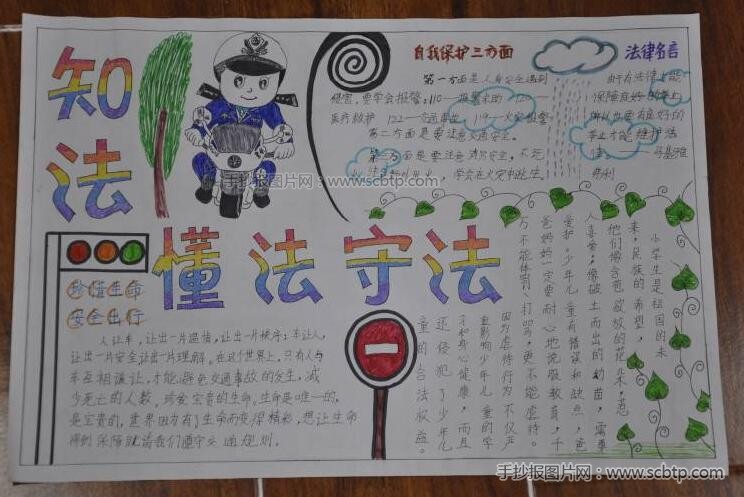 知法
懂法守法
自我保护三方面
第一方面是人身安全遇到
侵害,要学会报警:110—报警求助 120—
医疗救护 122—交通事故 119—火灾报警
第二方面是要注意交通安全。
第三方面是要注意消防安全,不死
学会在火灾中逃生
法律名言
由于有法律才能
保障良好的举止,
所以也要有良好的
举止才能维护法
律。 马基雅
弗利
珍惜生命
安全出行
人让车,让出一片温情,让出一片秩序;车让人,
让出一片安全让出一片理解。在这个世界上,只有人与
车互相谦让,才能避免交通事故的发生,减
少死亡的人数。珍爱宝贵的生命,生命是唯一的,
是宝贵的,世界因为有了生命而变得精彩,想让生命
得到保障就请我们遵守交通规则。
小学生是祖国的未
来,民族的希望,
他们像含苞欲放的花朵,惹
人喜爱,像破土而出的幼苗,需要
爱护。少年儿童有错误和缺点,爸
爸妈妈一定要耐心地说服教育,千
万不能体罚、打骂,更不能虐待。
因为虐待行为不仅严
重影响少年儿童的学
习和身心健康,而且
还侵犯了少年儿
童的合法权益。
手抄报图片网:www.scbtp.com
手抄报图片网:www.scbtp.com